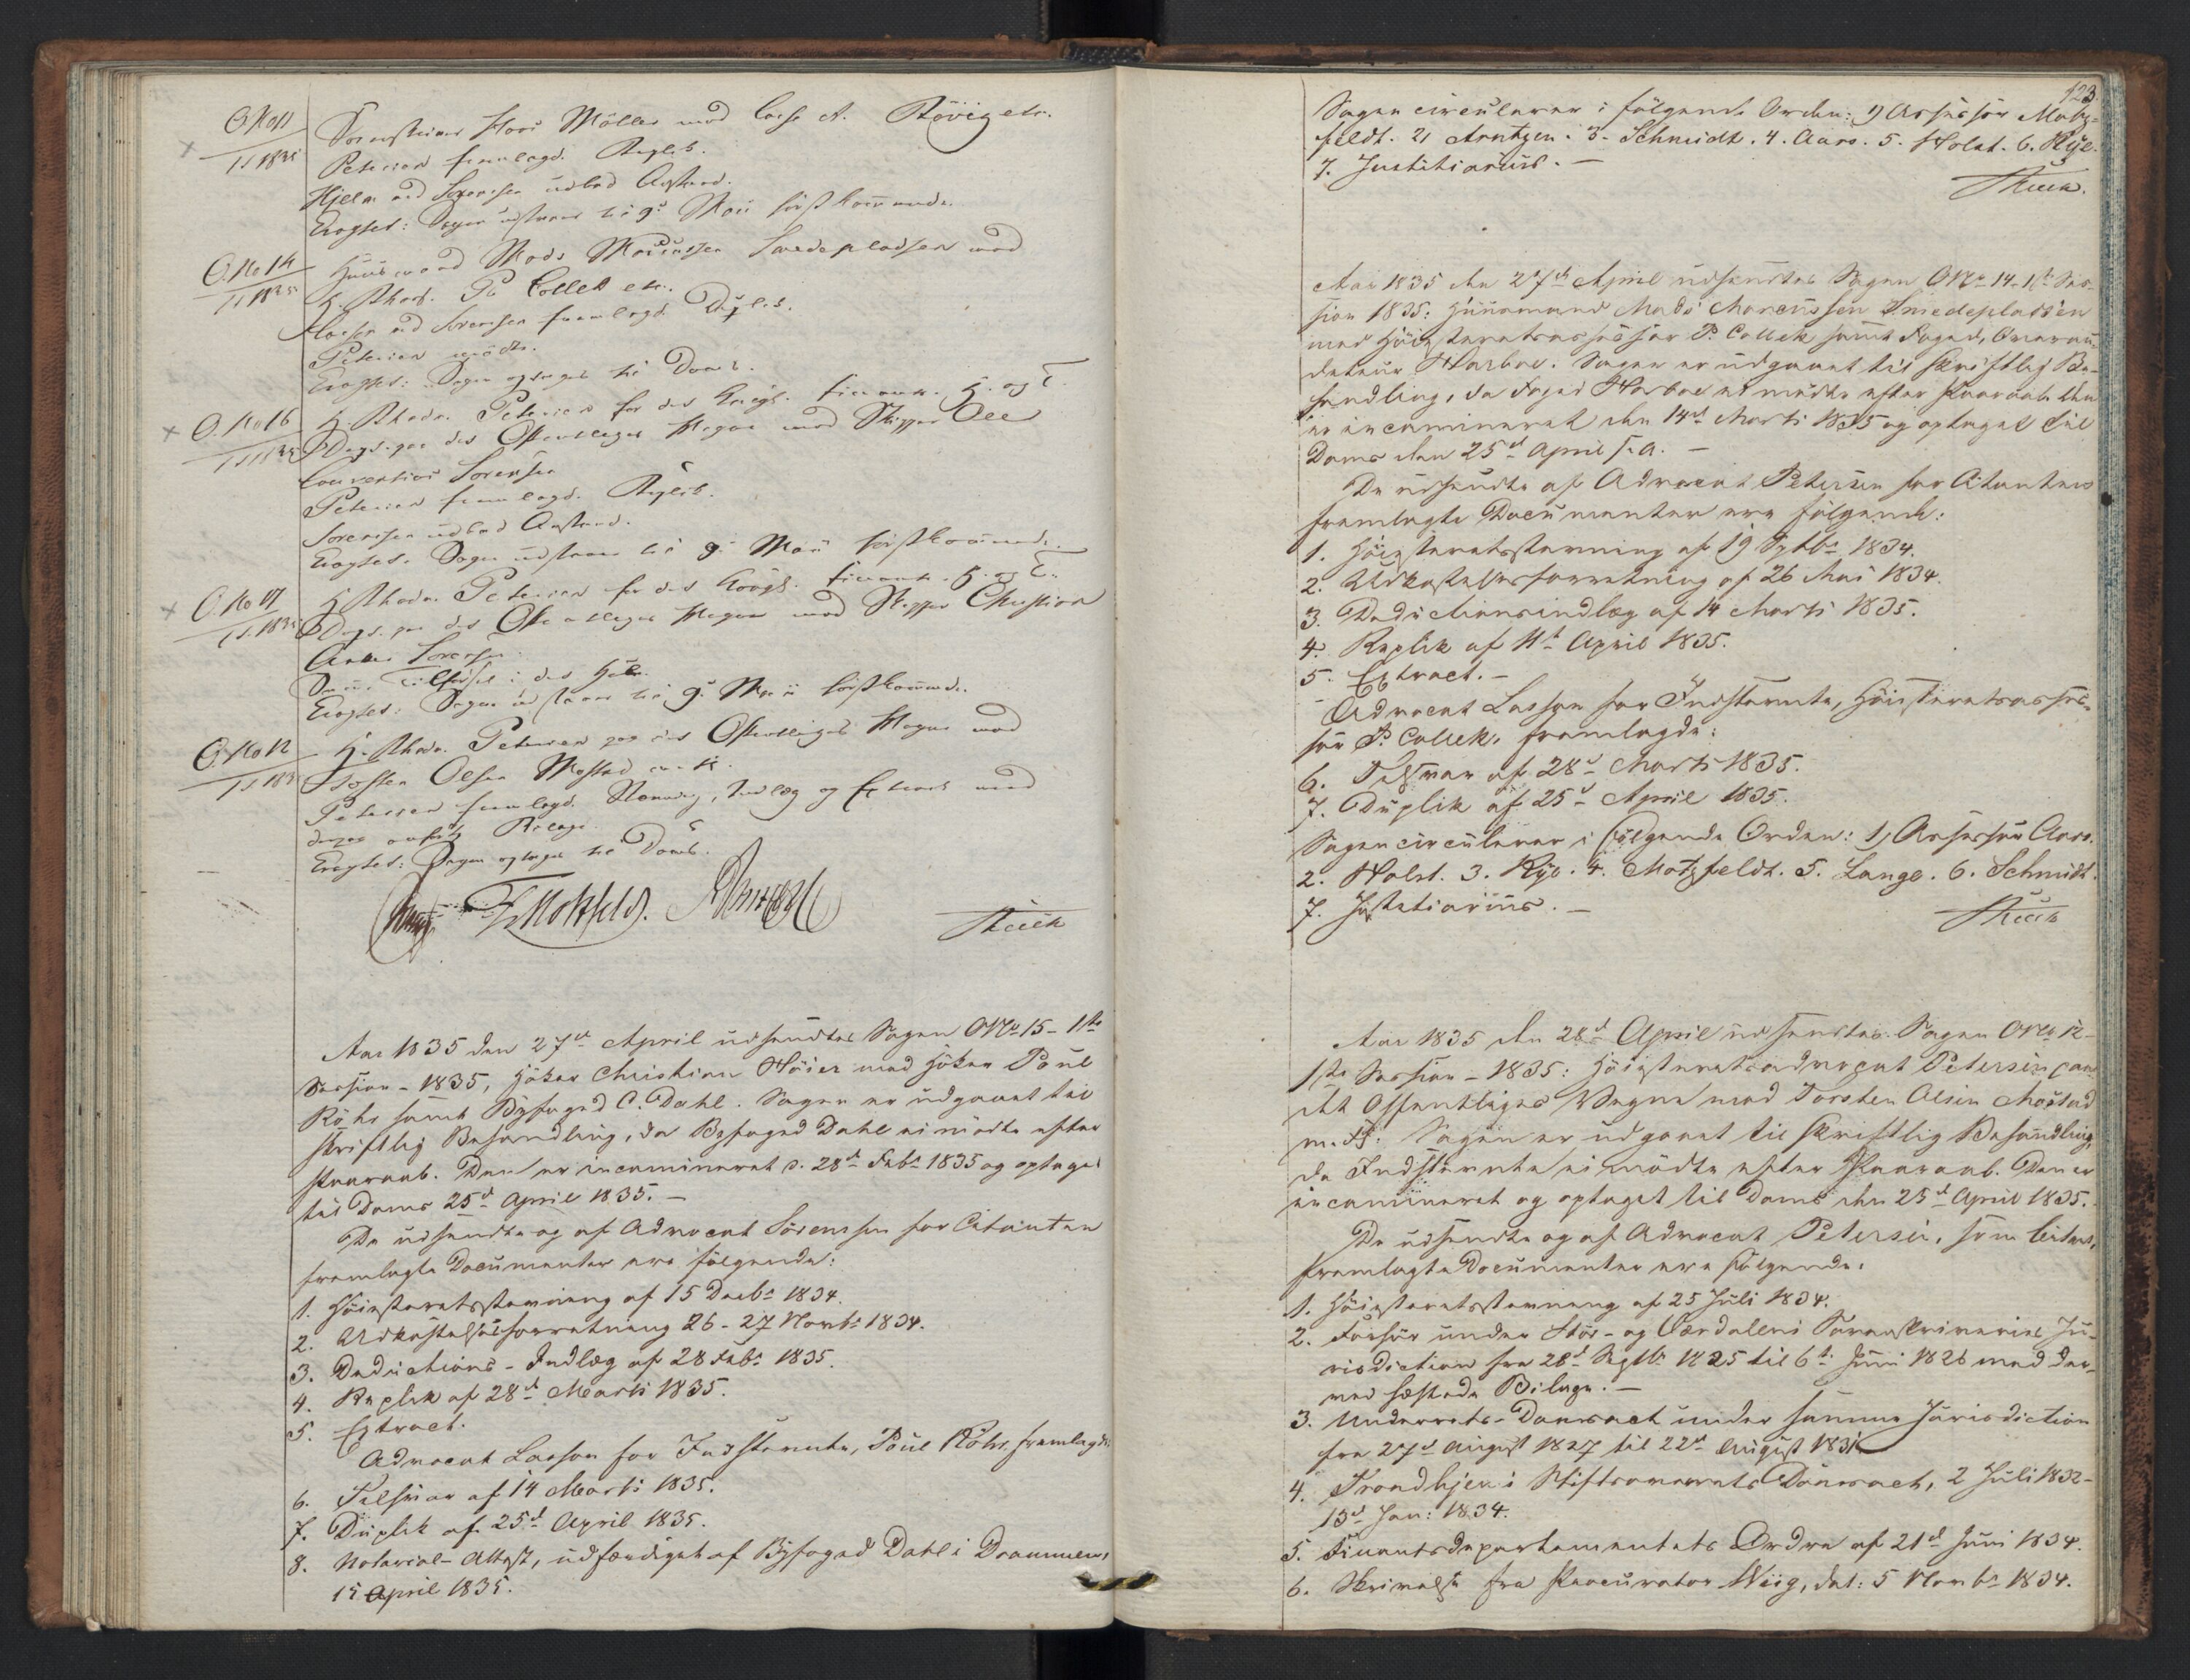 O.No 11
1 S. 1835
Hans Möller mod Lars A. Rövig etc.
Petersen fremlagde Replik.
Hjelm ved Sörensen udbad Anstand.
Eragtet: Sagen udstaaer til 9de Mai förstkommende.
O.No 14
1 S. 1835
Huusmand Mads Marcussen Smedepladsen mod
H. P. Collett etc.
Lasson ved Sörensen fremlagde Duplik.
Petersen mödte.
Eragtet: Sagen optages til Doms.
O.No 16
1 S. 1835
H. Petersen for det Kongl. Finants- H. og T.
Dep. paa det Offentliges Vegne mod Skipper Ole
Sörensen
Petersen fremlagde Replik.
Sörensen udbad Anstand.
Eragtet: Sagen udstaaer til 9de Mai förstkommende.
O.No 17
1 S. 1835
H. Petersen for det Kongl. Finants- H. og T.
Dep. paa det Offentliges Vegne mod Skipper Christian
Sörensen.
Samme Tilförsel i det Hele.
Eragtet: Sagen udstaaer til 9de Mai förstkommende.
O.No 12
1 S. 183
H. Petersen paa det Offentliges Vegne mod
Torsten Olsen Mostad m. fl.
Petersen fremlagde Stevning, Indlæg og Extract med
Bilage.
Eragtet: Sagen optages til Doms.
Motzfeldt.
Aar 1835 den 27de April udsendtes Sagen O No 15 - 1ste
Session - 1835, Höker Christian Höier mod Höker Poul
Röhr samt Byfoged C. Dahl. Sagen er udgaaet til
skriftlig Behandling, da Byfoged Dahl ei mödte efter
Paaraab. Den er incamineret d. 28de Febr 1835 og optaget
til Doms 25de April 1835. -
De udsendte og af Advocat Sörenssen for Citanten
fremlagte Documenter ere fölgende:
1. Höiesteretsstevning af 15 Decbr 1834.
2. Udkastelsesforretning 26 - 27 Novbr 1834.
3. Deductions - Indlæg af 28 Febr 1835.
4. Replik af 28de Marti 1835.
5. Extract.
Advocat Lasson for Indstevnte, Poul Röhr, fremlagde
6. Tilsvar af 14 Marti 1835.
7. Duplik af 25de April 1835.
8. Notarial - Attest, udfærdiget af Byfoged Dahl i Drammen,
15 April 1835.
123.
Sagen circulerer i fölgende Orden: 1) Assessor Motz-
feldt. 2) Arntzen. 3. Schmidt. 4. Aars. 5. Holst. 6. Rye.
7. Justitiarius. -
Aar 1835 den 27de April udsendtes Sagen O No 14 - 1ste Ses-
sion 1835: Huusmand Mads Marcussen Smedepladsen
mod Höiesteretsassessor P. Collett samt Foged, Krigsraad
Harboe. Sagen er udgaaet til skriftlig Be-
handling, da Foged Harboe ei mödte efter Paaraab. Den
er incamineret den 14de Marti 1835 og optaget til
Doms den 25de April s. a. -
De udsendte af Advocat Petersen for Citanten
fremlagte Documenter ere fölgende:
1. Höiesteretsstevning af 19 Septbr 1834.
2. Udkastelsesforretning af 26 Mai 1834.
3. Deductionsindlæg af 14 Marti 1835.
4. Replik af 11te April 1835.
5. Extract. -
Advocat Lasson for Indstevnte, Höiesteretsasses-
sor P. Collett, fremlagde:
6. Tilsvar af 28de Marti 1835.
7. Duplik af 25de April 1835.
Sagen circulerer i fölgende Orden: 1) Assessor Aars.
2. Holst. 3. Rye. 4. Motzfeldt. 5. Lange. 6. Schmidt.
7. Justitiarius. -
Aar 1835 den 28de April udsendtes Sagen O No 12 -
1ste Session - 1835: Höiesteretsadvocat Petersen paa
det Offentliges Vegne mod Torsten Olsen Mostad
m. fl. Sagen er udgaaet til skriftlig Behandling,
da Indstevnte ei mödte efter Paaraab. Den er
incamineret og optaget til Doms den 25de April 1835.
De udsendte og af Advocat Petersen, som Citant,
fremlagte Documenter ere fölgende.
1. Höiesteretsstevning af 25 Juli 1834.
2. Forhör under Stör- og Værdalens Sorenskriveries Ju-
risdiction fra 28de Septbr 1825 til 6te Juni 1826 med der-
ved hæftede Bilage. -
3. Underrets - Domsact under samme Jurisdiction
fra 27de August 1827 til 22de August 1831
4. Trondhjems Stiftsoverrets Domsact, 2 Juli 1832 -
13de Jan: 1834.
5. Finantsdepartementets Ordre af 21de Juni 1834.
6. Skrivelse fra Procurator Wiig, dat: 5 Novbr 1834.